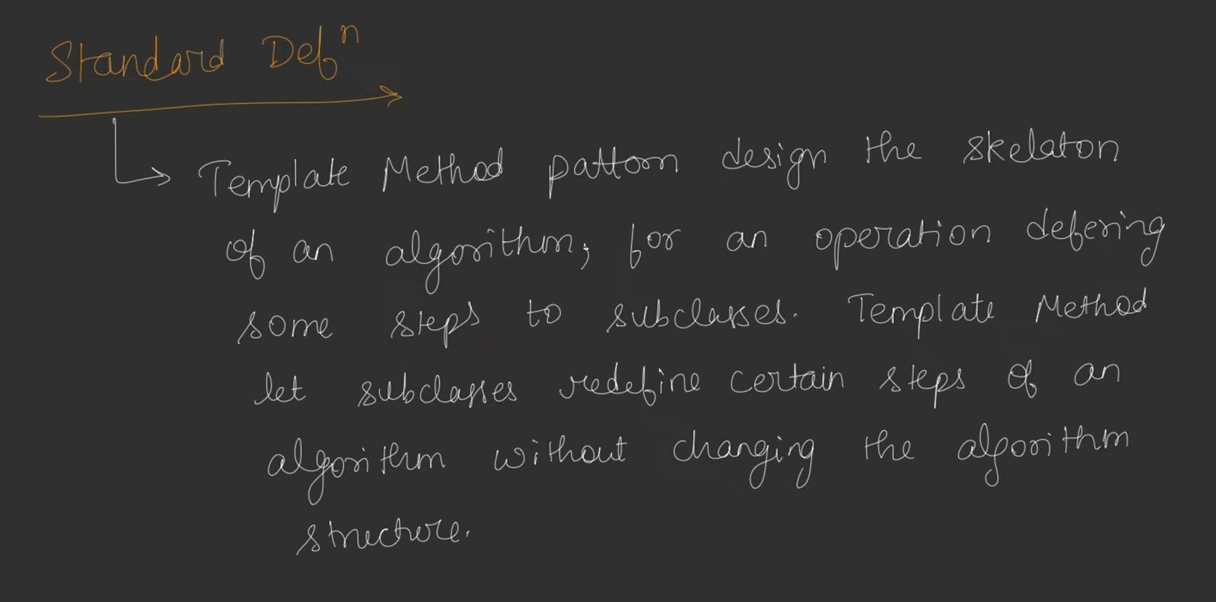 Standard Defⁿ
Template Method pattorn design the skelaton
of an algorithm, for an operation defering
some steps to subclasses. Template Method
let subclasses redefine certain steps of an
algorithm without changing the algorithm
structure.